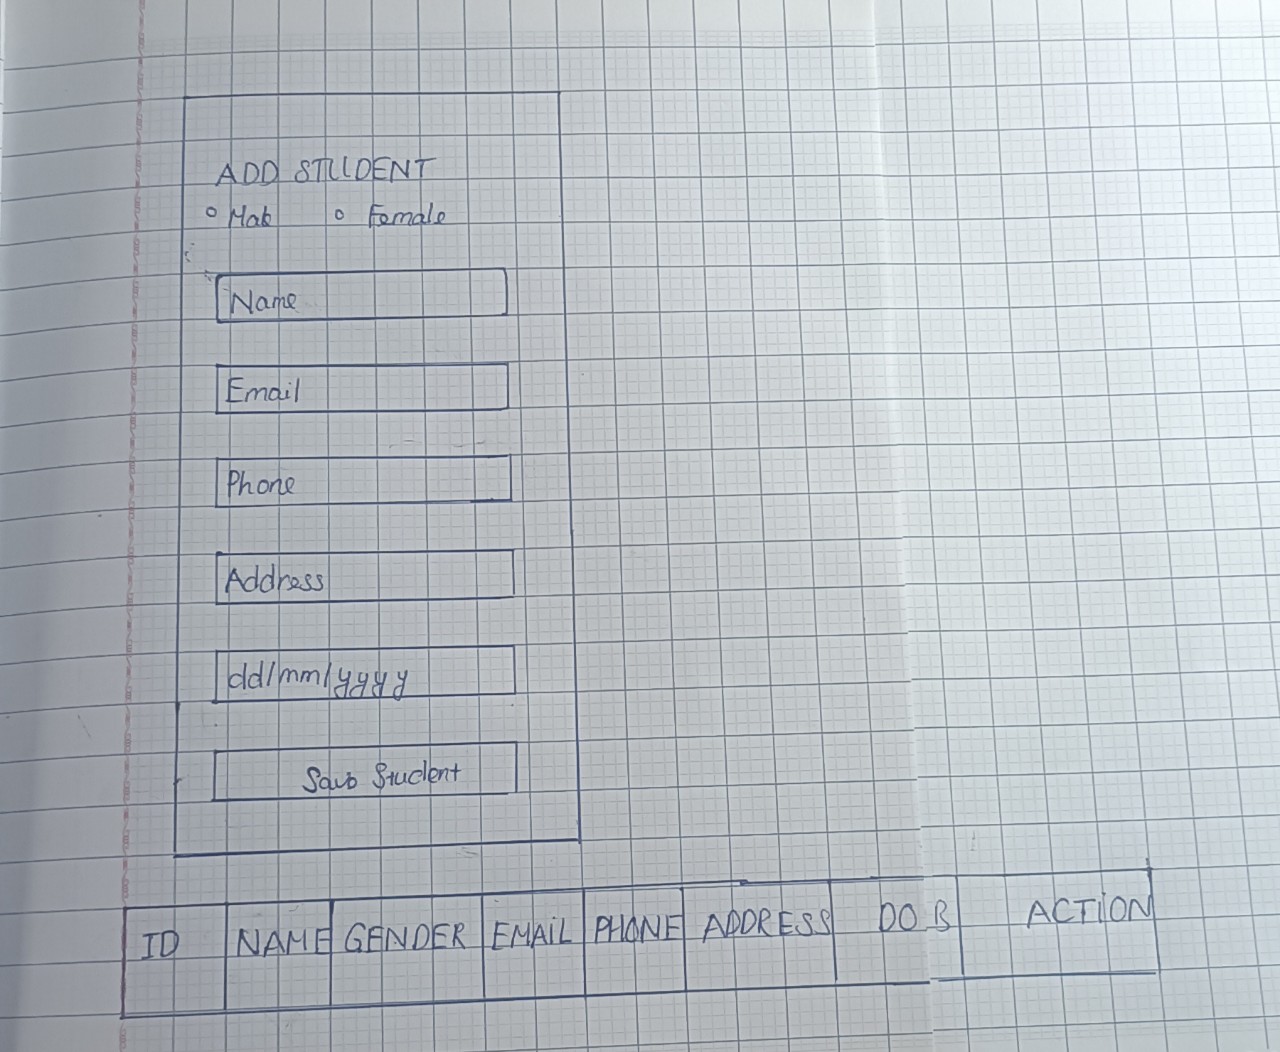 ADD STUDENT
Male Female
Name
Email
Phone
Address
dd/mm/yyyy
Save Student
ID NAME GENDER EMAIL PHONE ADDRESS DOB ACTION